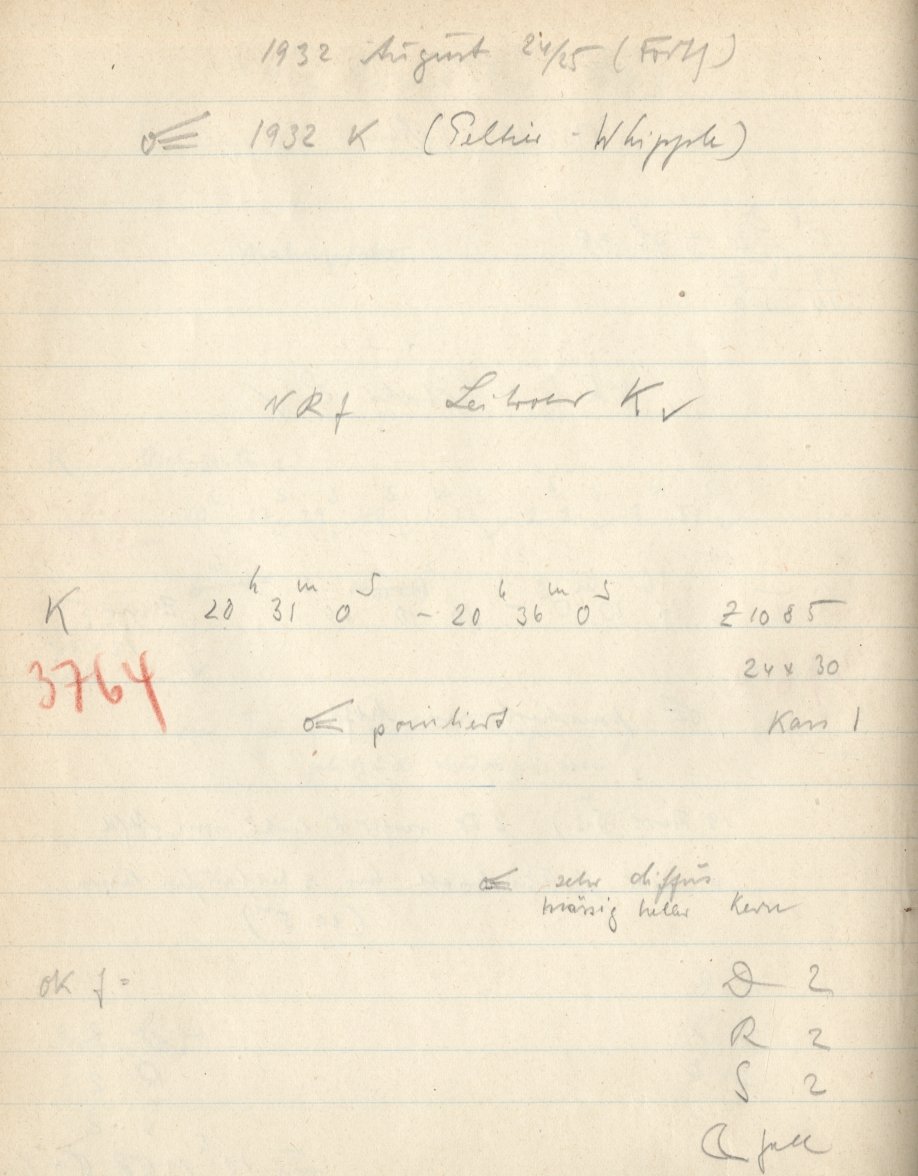 1932 August 24/25 (Forts)
☄ 1932 K (Peltier - Whipple)
NRf Leitrohr K ✓
K 20ʰ 31ᵐ 0ˢ - 20ʰ 36ᵐ 0ˢ Z 1085
3764 24 x 30
☄ pointiert Kass 1
☄ sehr diffus
mässig heller Kern
OK f =
D 2
R 2
S 2
☾